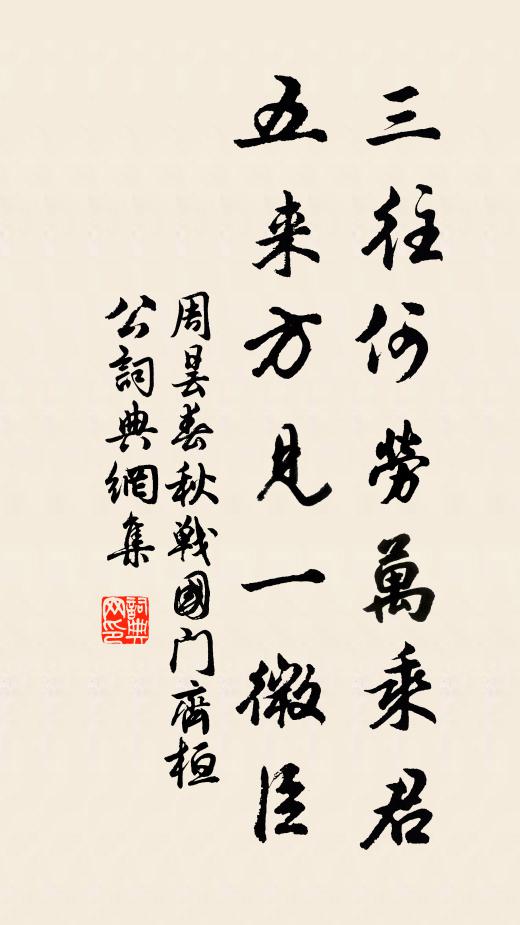 三往何勞萬乘君
五来方見一微臣
周昙春秋戰國门齊桓
公詞典網集
詞典
网印